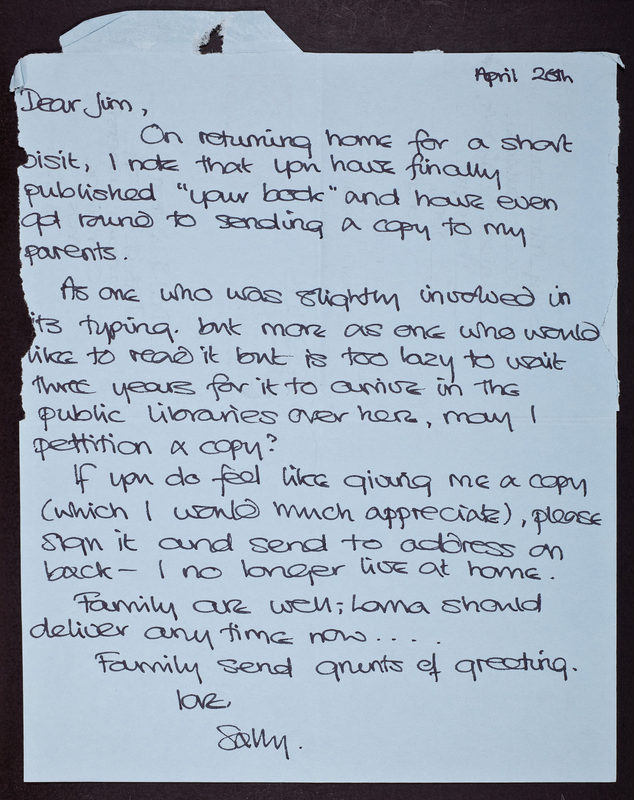 April 26th
Dear Jim,
On returning home for a short
visit, I note that you have finally
published "your book" and have even
got round to sending a copy to my
parents.
As one who was slightly involved in
its typing. but more as one who would
like to read it but is too lazy to wait
three years for it to arrive in the
public libraries over here, may I
pettition a copy?
If you do feel like giving me a copy
(which I would much appreciate), please
sign it and send to address on
back - I no longer live at home.
Family are well; Lorna should
deliver any time now.....
Family send grunts of greeting.
love,
Sally.